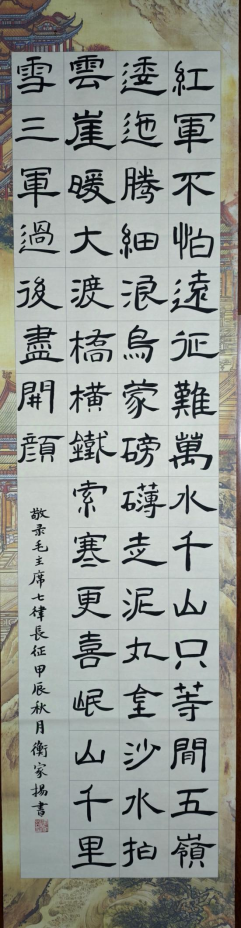 紅軍不怕遠征難萬水千山只等閒五嶺
逶迤騰細浪烏蒙磅礴走泥丸金沙水拍
雲崖暖大渡橋橫鐵索寒更喜岷山千里
雪三軍過後盡開顏
敬录毛主席七律長征甲辰秋月衡家揚書